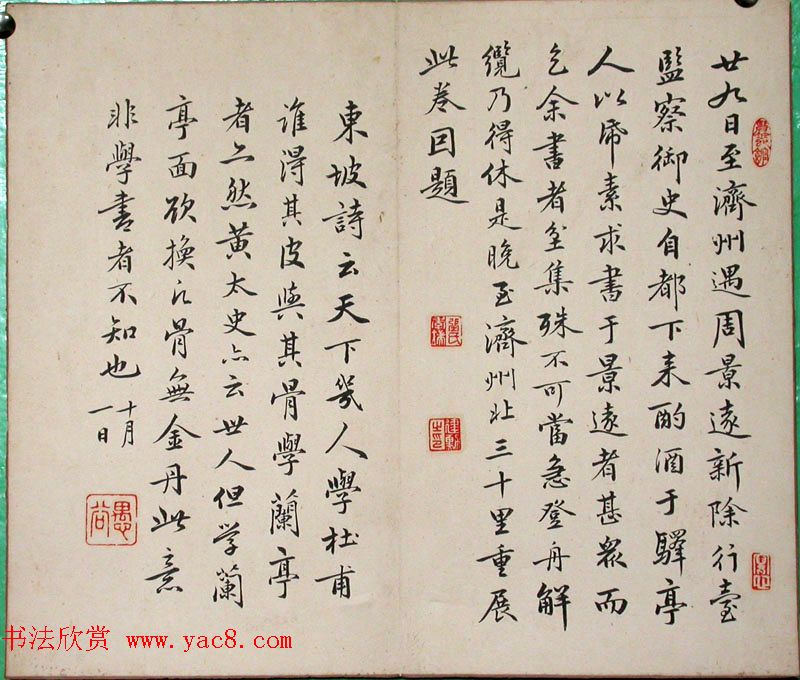 廿九日至濟州遇周景遠新除行臺
監察御史自都下来酌酒于驛亭
人以帋素求書于景遠者甚衆而
乞余書者坌集殊不可當急登舟解
纜乃得休是晚至濟州北三十里重展
此卷因題
東坡詩云天下幾人學杜甫
誰得其皮與其骨學蘭亭
者亦然黄太史亦云世人但学蘭
亭面欲換凡骨無金丹此意
非學書者不知也十月
一日
愚谷
书法欣赏 www.yac8.com